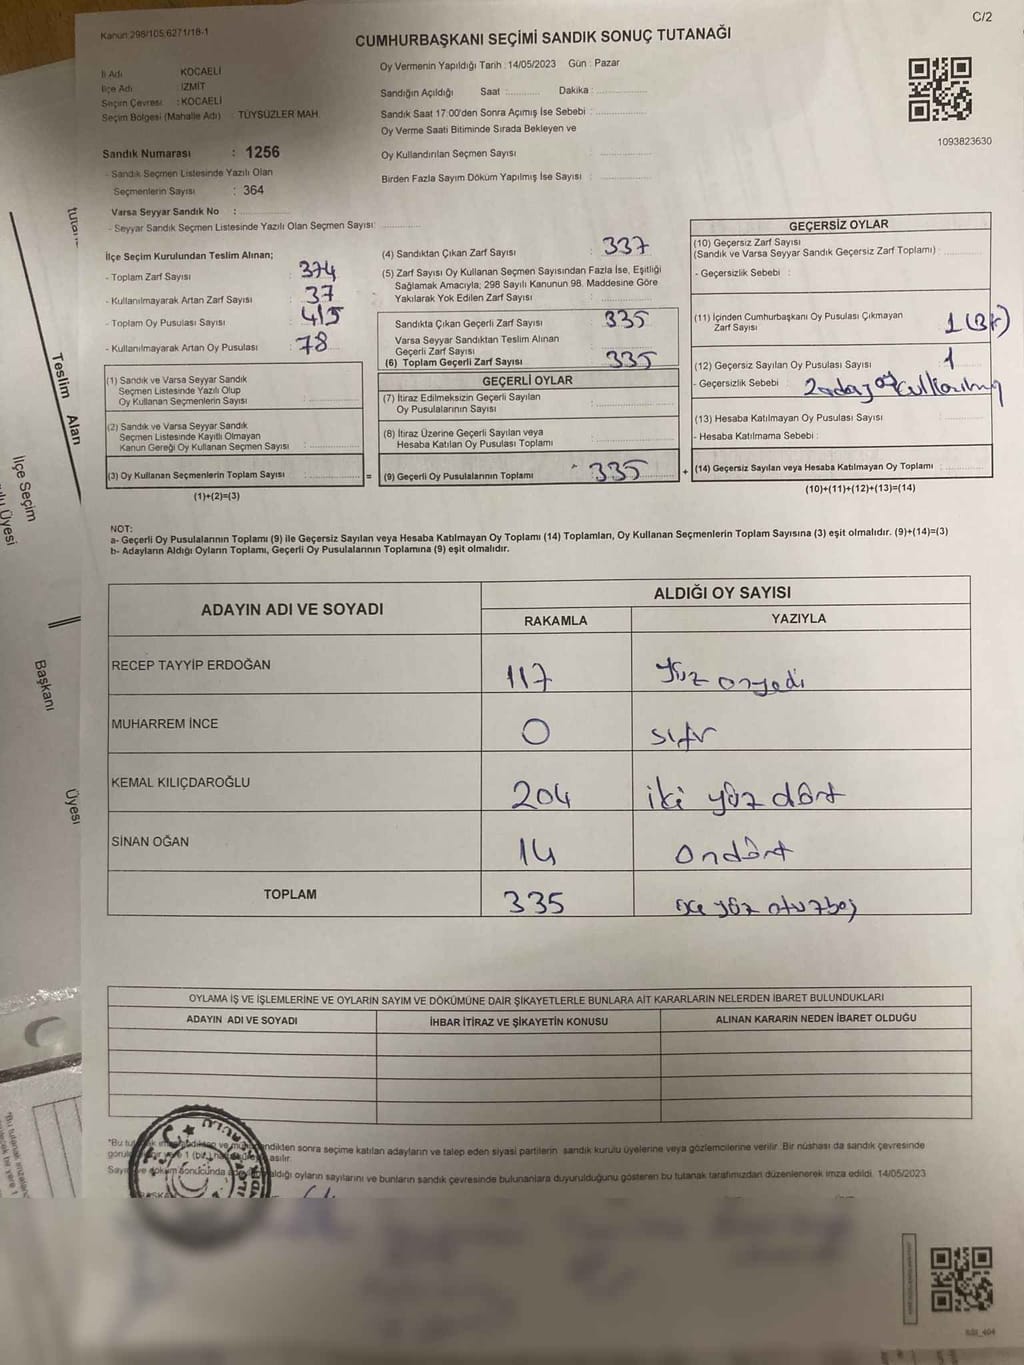 C/2
Kanun:298/105,6271/18-1
CUMHURBAŞKANI SEÇİMİ SANDIK SONUÇ TUTANAĞI
İl Adı KOCAELİ
İlçe Adı İZMİT
Seçim Çevresi : KOCAELİ
Seçim Bölgesi (Mahalle Adı) : TÜYSÜZLER MAH.
Sandık Numarası : 1256
- Sandık Seçmen Listesinde Yazılı Olan
Seçmenlerin Sayısı : 364
Varsa Seyyar Sandık No :
- Seyyar Sandık Seçmen Listesinde Yazılı Olan Seçmen Sayısı:
Oy Vermenin Yapıldığı Tarih : 14/05/2023 Gün : Pazar
Sandığın Açıldığı Saat : Dakika :
Sandık Saat 17:00'den Sonra Açımış İse Sebebi :
Oy Verme Saati Bitiminde Sırada Bekleyen ve
Oy Kullandırılan Seçmen Sayısı :
Birden Fazla Sayım Döküm Yapılmış İse Sayısı :
1093823630
İlçe Seçim Kurulundan Teslim Alınan;
- Toplam Zarf Sayısı : 374
- Kullanılmayarak Artan Zarf Sayısı : 37
- Toplam Oy Pusulası Sayısı : 415
- Kullanılmayarak Artan Oy Pusulası : 78
(1) Sandık ve Varsa Seyyar Sandık
Seçmen Listesinde Yazılı Olup
Oy Kullanan Seçmenlerin Sayısı :
(2) Sandık ve Varsa Seyyar Sandık
Seçmen Listesinde Kayıtlı Olmayan
Kanun Gereği Oy Kullanan Seçmen Sayısı :
(3) Oy Kullanan Seçmenlerin Toplam Sayısı :
(1)+(2)=(3)
=
(4) Sandıktan Çıkan Zarf Sayısı : 337
(5) Zarf Sayısı Oy Kullanan Seçmen Sayısından Fazla İse, Eşitliği
Sağlamak Amacıyla, 298 Sayılı Kanunun 98. Maddesine Göre
Yakılarak Yok Edilen Zarf Sayısı :
Sandıkta Çıkan Geçerli Zarf Sayısı : 335
Varsa Seyyar Sandıktan Teslim Alınan
Geçerli Zarf Sayısı :
(6) Toplam Geçerli Zarf Sayısı : 335
GEÇERLİ OYLAR
(7) İtiraz Edilmeksizin Geçerli Sayılan
Oy Pusulalarının Sayısı :
(8) İtiraz Üzerine Geçerli Sayılan veya
Hesaba Katılan Oy Pusulası Toplamı :
(9) Geçerli Oy Pusulalarının Toplamı : 335
+
GEÇERSİZ OYLAR
(10) Geçersiz Zarf Sayısı
(Sandık ve Varsa Seyyar Sandık Geçersiz Zarf Toplamı) :
- Geçersizlik Sebebi :
(11) İçinden Cumhurbaşkanı Oy Pusulası Çıkmayan
Zarf Sayısı : 1
(12) Geçersiz Sayılan Oy Pusulası Sayısı : 1
- Geçersizlik Sebebi : 2 oy
(13) Hesaba Katılmayan Oy Pusulası Sayısı :
- Hesaba Katılmama Sebebi :
(14) Geçersiz Sayılan veya Hesaba Katılmayan Oy Toplamı :
(10)+(11)+(12)+(13)=(14)
NOT:
a- Geçerli Oy Pusulalarının Toplamı (9) ile Geçersiz Sayılan veya Hesaba Katılmayan Oy Toplamı (14) Toplamları, Oy Kullanan Seçmenlerin Toplam Sayısına (3) eşit olmalıdır. (9)+(14)=(3)
b- Adayların Aldığı Oyların Toplamı, Geçerli Oy Pusulalarının Toplamına (9) eşit olmalıdır.
ADAYIN ADI VE SOYADI ALDIĞI OY SAYISI
RAKAMLA YAZIYLA
RECEP TAYYİP ERDOĞAN 117 yüz onyedi
MUHARREM İNCE 0 sıfır
KEMAL KILIÇDAROĞLU 204 iki yüz dört
SİNAN OĞAN 14 ondört
TOPLAM 335 üç yüz otuzbeş
OYLAMA İŞ VE İŞLEMLERİNE VE OYLARIN SAYIM VE DÖKÜMÜNE DAİR ŞİKAYETLERLE BUNLARA AİT KARARLARIN NELERDEN İBARET BULUNDUKLARI
ADAYIN ADI VE SOYADI İHBAR İTİRAZ VE ŞİKAYETİN KONUSU ALINAN KARARIN NEDEN İBARET OLDUĞU
"Bu sonra seçime katılan adayların ve talep eden siyasi partilerin sandık kurulu üyelerine veya gözlemcilerine verilir. Bir nüshası da sandık çevresinde
asılır.
aldığı oyların sayılarını ve bunların sandık çevresinde bulunanlara duyurulduğunu gösteren bu tutanak tarafımızdan düzenlenerek imza edildi. 14/05/2023
T.C.
Teslim Alan
İlçe Seçim
Başkanı
Üyesi